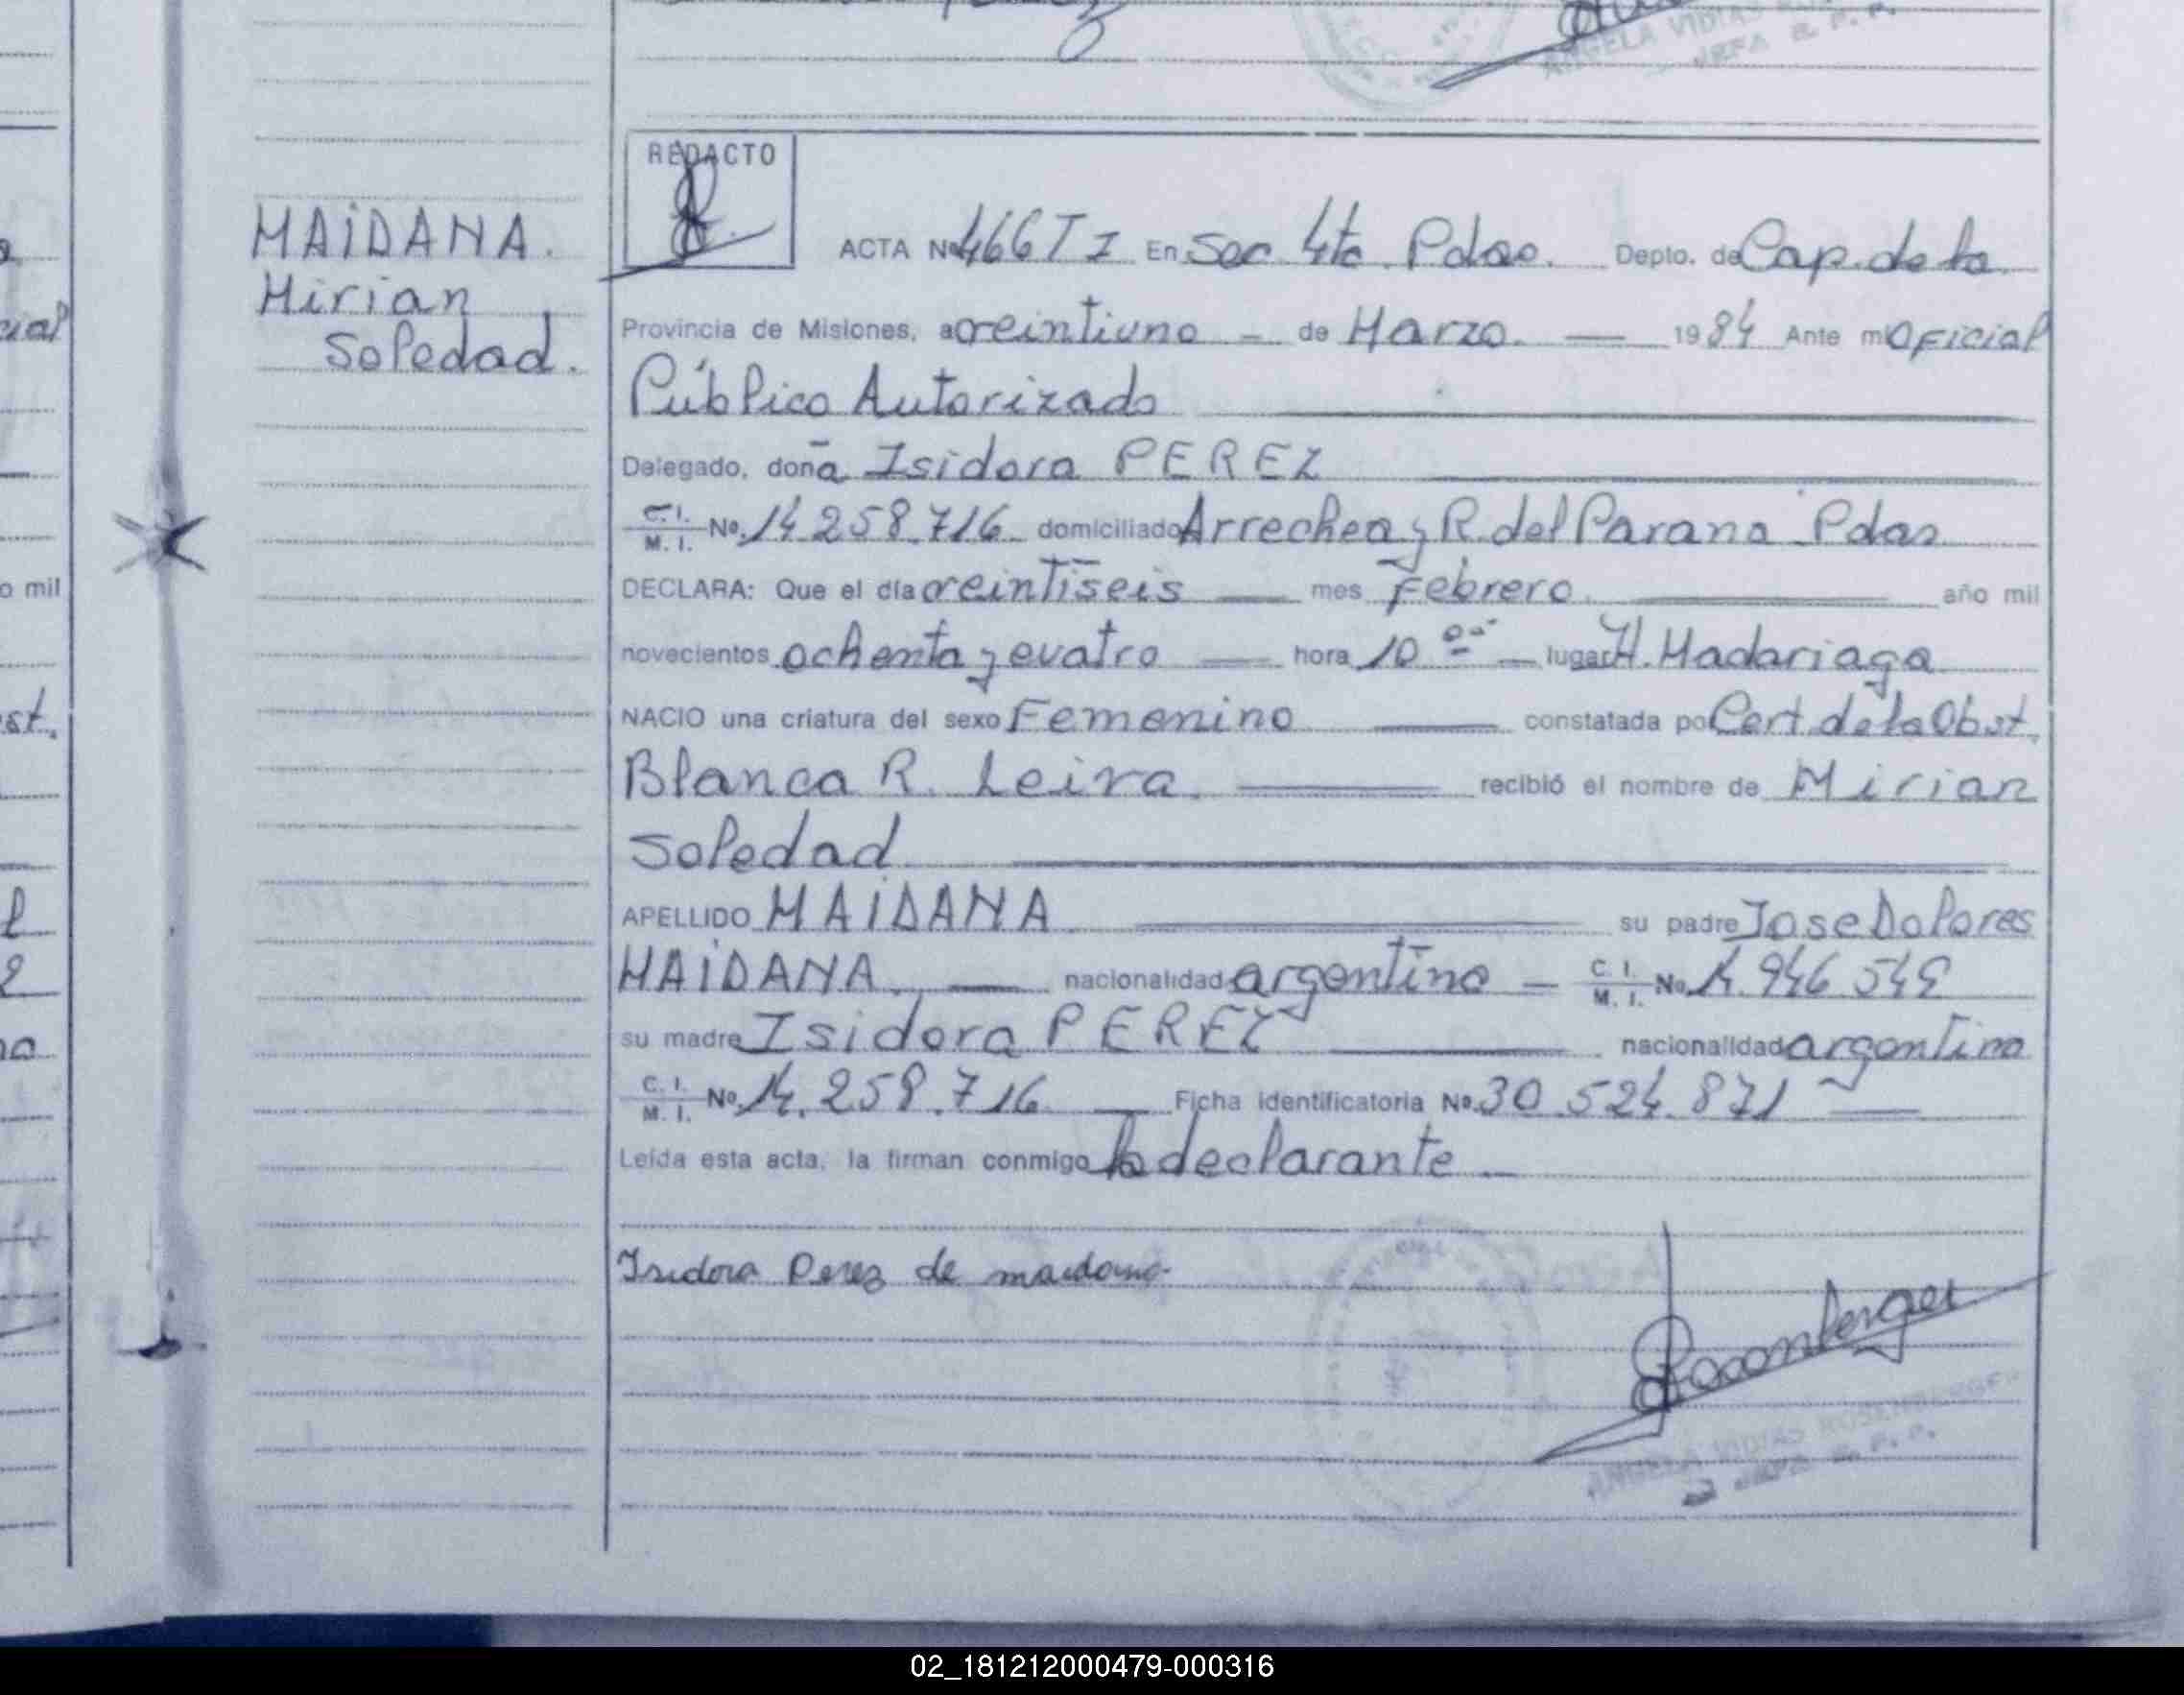 ANGELA VIDIAS
JEFA R. P. P.
REDACTO
MAIDANA.
Mirian
Soledad.
ACTA Nº 466 T I En Sec 4ta Pdas. Depto. de Cap. de la
Provincia de Misiones, a veintiuno - de Marzo. — 1984 Ante mi Oficial
Público Autorizado
Delegado, doña Isidora PEREZ
C. I. M. I. Nº 14.258.716 domiciliado Arrechea y R. del Parana Pdas
DECLARA: Que el día veintiseis — mes Febrero. — año mil
novecientos ochenta y cuatro — hora 10 00 — lugar H. Madariaga
NACIO una criatura del sexo Femenino — constatada por Cert. de la Obst.
Blanca R. Leiva. — recibió el nombre de Mirian
Soledad
APELLIDO MAIDANA — su padre Jose Dolores
MAIDANA. — nacionalidad argentino — C. I. M. I. Nº 4.946.549
su madre Isidora PEREZ — nacionalidad argentina
C. I. M. I. Nº 14.258.716 — Ficha identificatoria Nº 30.524.871 —
Leída esta acta, la firman conmigo la declarante
Isidora Perez de maidana
Rosemberger
ANGELA VIDIAS ROSEMBERGER
JEFA R. P. P.
o mil
st.
02_181212000479-000316